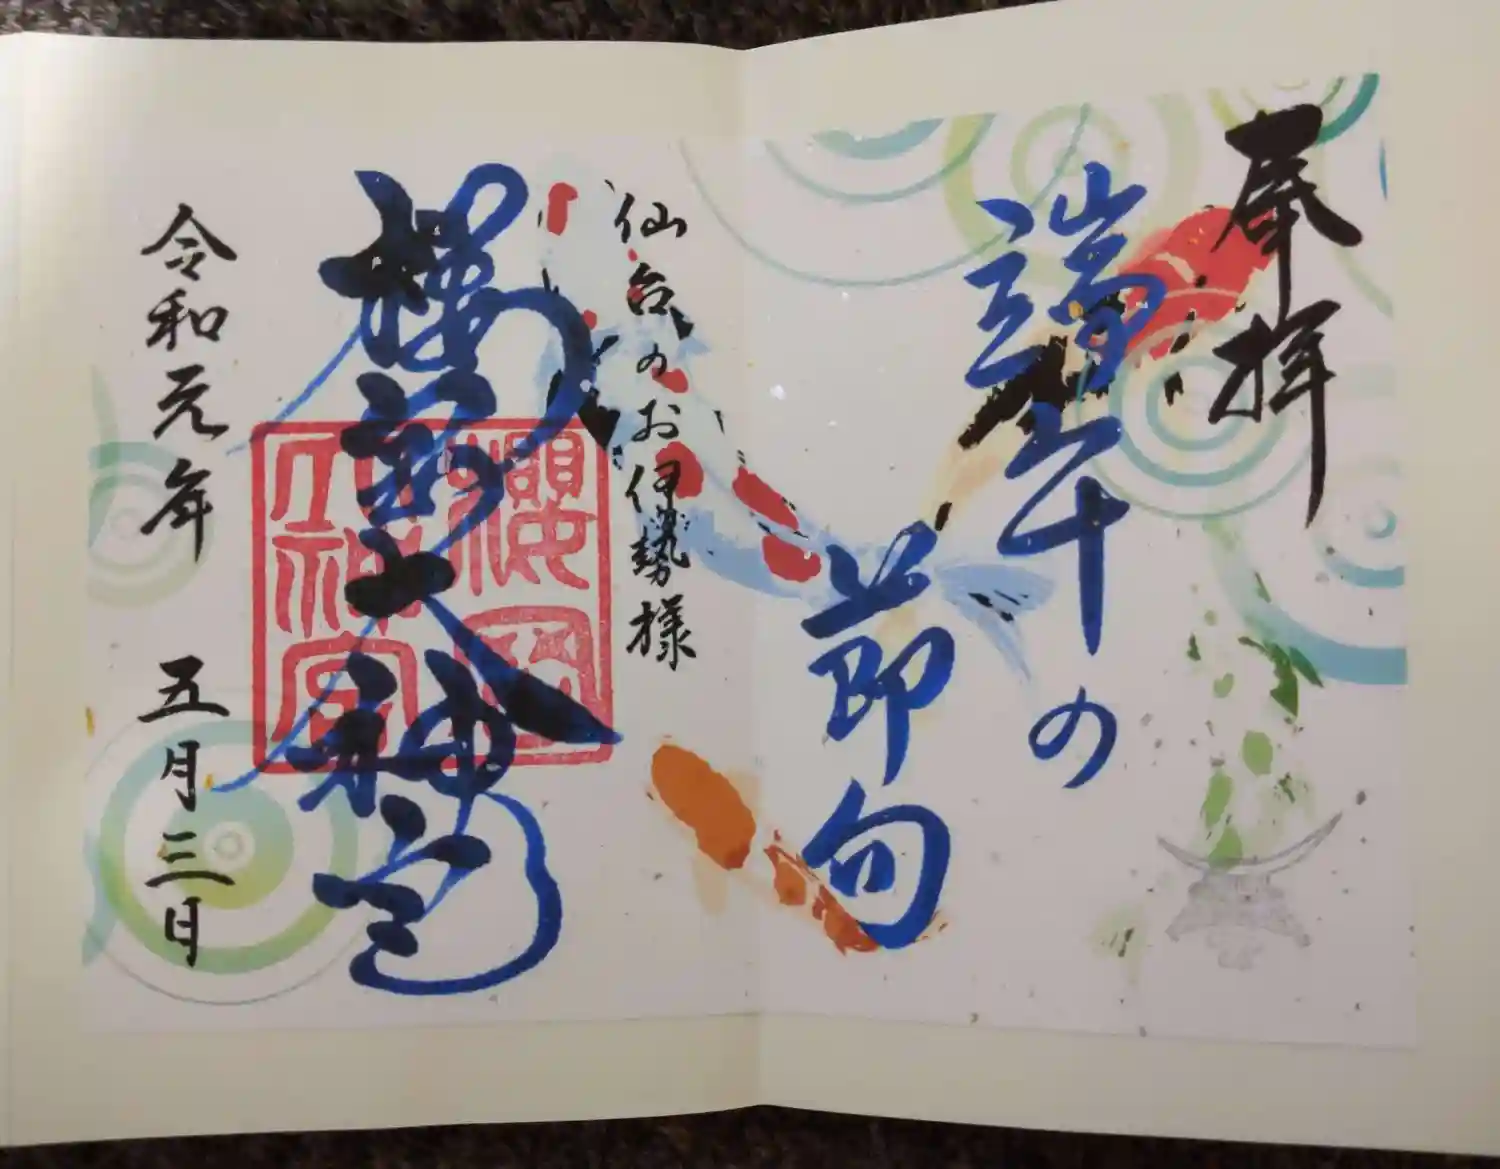 奉拝
端午の
節句
仙台のお伊勢様
櫻岡大神宮
令和元年 五月三日
櫻岡大神宮